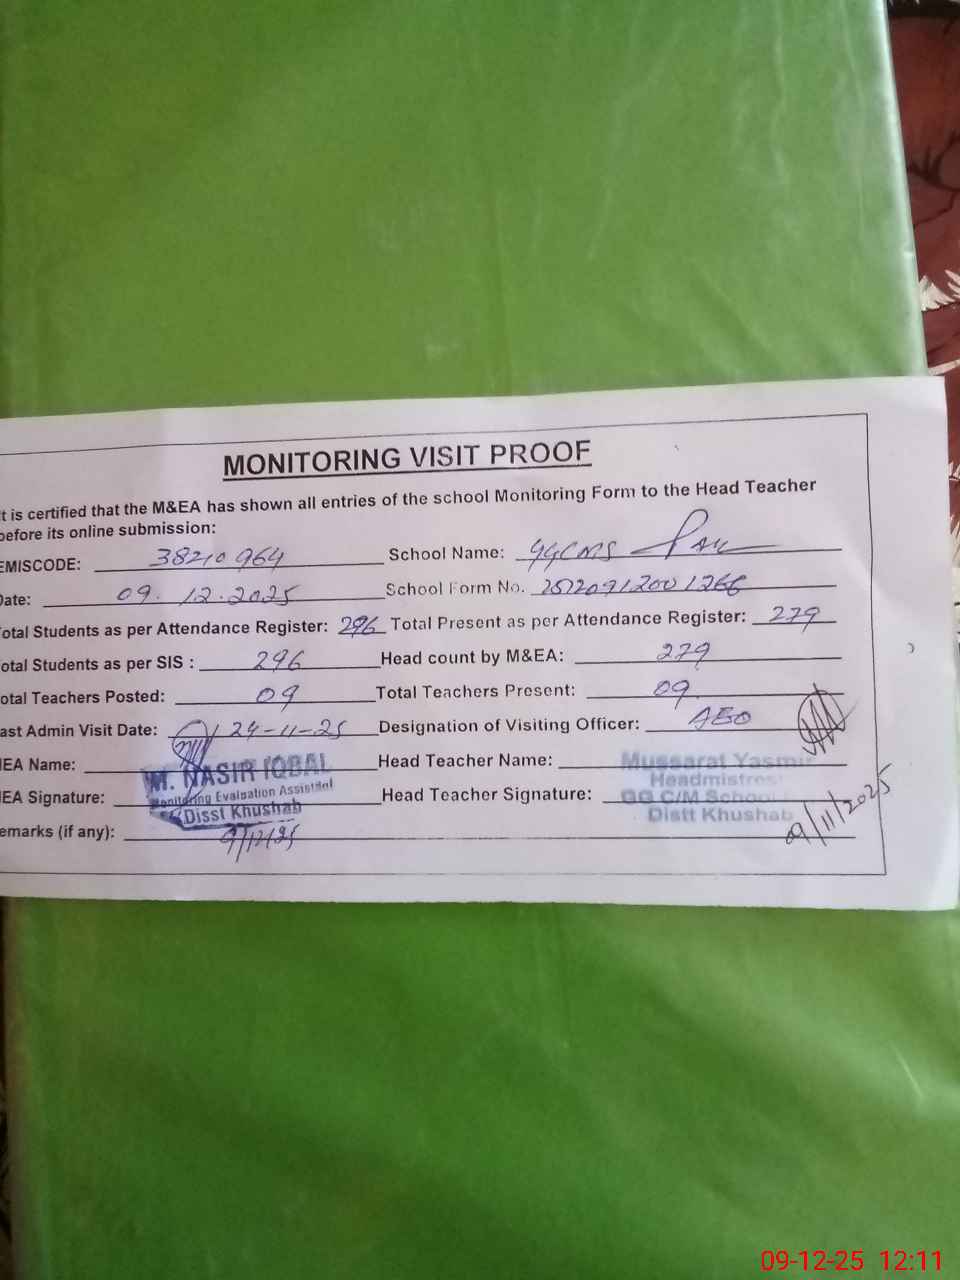 MONITORING VISIT PROOF
t is certified that the M&EA has shown all entries of the school Monitoring Form to the Head Teacher
before its online submission:
EMISCODE: 38210964 School Name: GGCMS
Date: 09.12.2025 School Form No.
otal Students as per Attendance Register: 296 Total Present as per Attendance Register: 279
otal Students as per SIS : 296 Head count by M&EA: 279
otal Teachers Posted: 09 Total Teachers Present: 09
ast Admin Visit Date: 24-11-25 Designation of Visiting Officer: AEO
EA Name: M. NASIR IQBAL Head Teacher Name: Mussarat Yasmi
Monitoring Evaluation Assistant Headmistres
EA Signature: Disst Khushab Head Teacher Signature: GG C/M School
Distt Khushab
emarks (if any): 9/12/25 09/11/2025
09-12-25 12:11